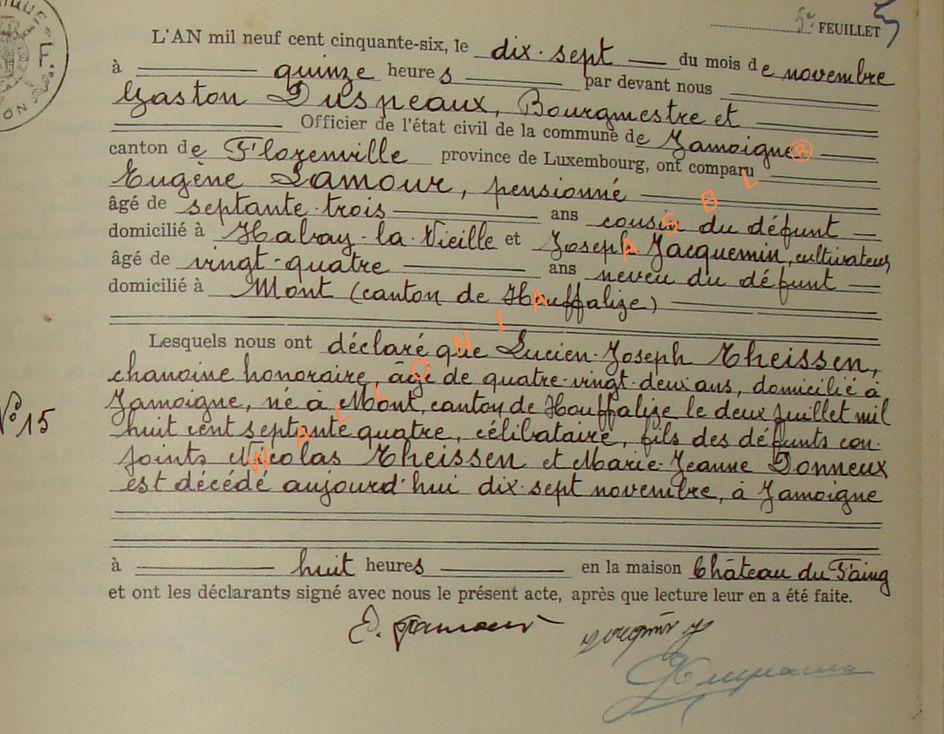 5e FEUILLET 5
L'AN mil neuf cent cinquante-six, le dix-sept du mois de novembre
à quinze heures par devant nous
Gaston Duspeaux, Bourgmestre et
Officier de l'état civil de la commune de Jamoigne
canton de Florenville province de Luxembourg, ont comparu
Eugène Lamour, pensionné
âgé de septante-trois ans cousin du défunt
domicilié à Habay-la-Vieille et Joseph Jacquemin, cultivateur
âgé de vingt-quatre ans neveu du défunt
domicilié à Mont (canton de Houffalize)
Lesquels nous ont déclaré que Lucien-Joseph Theissen,
chanoine honoraire, âgé de quatre-vingt-deux ans, domicilié à
Jamoigne, né à Mont, canton de Houffalize le deux juillet mil
N° 15
huit cent septante quatre, célibataire, fils des défunts con-
joints Nicolas Theissen et Marie-Jeanne Donneux
est décédé aujourd'hui dix-sept novembre, à Jamoigne
à huit heures en la maison Château du Faing
et ont les déclarants signé avec nous le présent acte, après que lecture leur en a été faite.
E. Lamour
WALLONIA ASBL ®